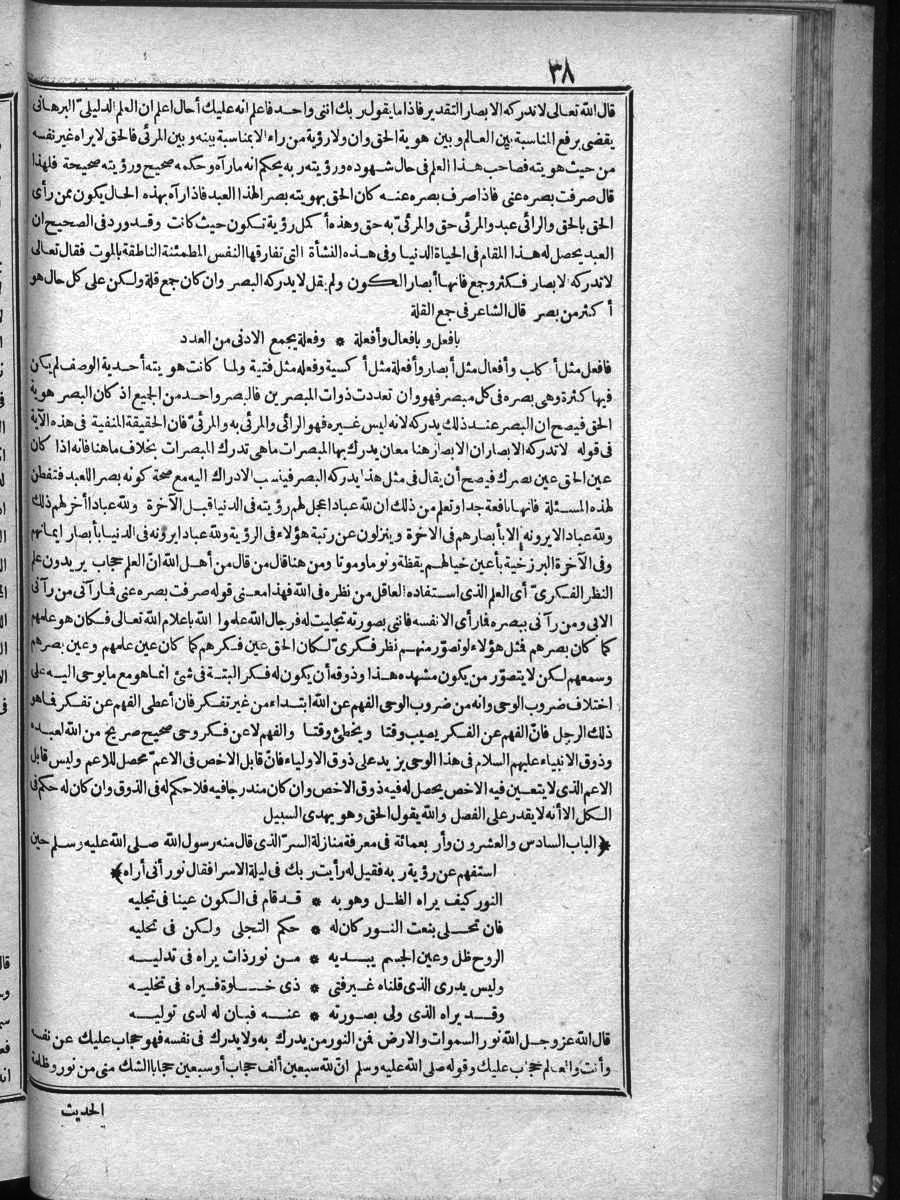 ٣٨
قال الله تعالى لا تدركه الابصار التقدير فاذا ما يقول ربك اننى واحد فاعلم انه عليك أحال اعلم ان العلم الدليلىّ البرهانى
يقضى برفع المناسبة بين العالم وبين هوية الحق وان ولا رؤية من راء الا بمناسبة بينه وبين المرئى فالحق لا يراه غير نفسه
من حيث هويته فصاحب هذا العلم فى حال شهوده ورؤيته ربه يحكم انه ما رآه وحكمه صحيح ورؤيته صحيحة فلهذا
قال صرفت بصره عنى فاذا صرف بصره عنه كان الحق بهويته بصر الهذا العبد فاذا رآه بهذه الحال يكون بمن رأى
الحق بالحق والرائى عبد والمرئى حق والمرئىّ به حق وهذه أكمل رؤية تكون حيث كانت وقد ورد فى الصحيح ان
العبد يحصل له هذا المقام فى الحياة الدنيا وفى هذه النشأة التى تفارقها النفس المطمئنة الناطقة بالموت فقال تعالى
لا تدركه لا بصار فكثر وجمع فانها أبصار الكون ولم يقل لا يدركه البصر وان كان جمع قلة ولكن على كل حال هو
أكثر من بصر قال الشاعر فى جمع القلة
بافعل وبافعال وأفعلة * وفعلة يجمع الادنى من العدد
فافعل مثل أكلب وأفعال مثل أبصار وأفعلة مثل أكسية وفعله مثل فتية ولما كانت هويته أحدية الوصف لم يكن
فيها كثرة وهى بصره فى كل مبصر فهو وان تعددت ذوات المبصرين فالبصر واحد من الجميع اذ كان البصر هوية
الحق فيصح ان البصر عند ذلك يدركه لانه ليس غيره فهو الرائى والمرئى به والمرئىّ فان الحقيقة المنفية فى هذه الآية
فى قوله لا تدركه الابصار ان الابصار هنا معان يدرك بها المبصرات ما هى تدرك المبصرات بخلاف ما هنا فانه اذا كان
عين الحق عين بصرك فيصح أن يقال فى مثل هذا يدركه البصر فينسب الادراك اليه مع صحة كونه بصر اللعبد فتفطن
لهذه المسئلة فانها نافعة جدا وتعلم من ذلك ان لله عبادا عجل لهم رؤيته فى الدنيا قبل الآخرة ولله عبادا أخر لهم ذلك
ولله عبادا لا يرونه الا بأبصارهم فى الاخرة وينزلون عن رتبة هؤلاء فى الرؤية ولله عبادا يرونه فى الدنيا بأبصار ايمانهم
وفى الآخرة البرزخية بأعين خيالهم يقظة ونوما وموتا ومن هنا قال من قال من أهل الله انّ العلم حجاب يريدون علم
النظر الفكرىّ أى العلم الذى استفاده العاقل من نظره فى الله فهذا معنى قوله صرفت بصره عنى فارآنى من رآنى
الابى ومن رآنى ببصره فمارأى الا نفسه فاننى بصورته تجليت له فرجال الله علموا الله باعلام الله تعالى فكان هو علمهم
كما كان بصرهم فمثل هؤلاء لو تصوّر منهم نظر فكرىّ لكان الحق عين فكرهم كما كان عين علمهم وعين بصرهم
وسمعهم لكن لا يتصوّر من يكون مشهده هذا وذوقه أن يكون له فكر البتة فى شئ انما هو مع ما يوحى اليه على
اختلاف ضروب الوحى وانه من ضروب الوحى الفهم عن الله ابتداء من غير تفكر فان أعطى الفهم عن تفكر فما هو
ذلك الرجل فانّ الفهم عن الفكر يصيب وقتا ويخطئ وقتا والفهم لا عن فكر وحى صحيح صريح من الله لعبده
وذوق الانبياء عليهم السلام فى هذا الوحى يزيد على ذوق الاولياء فانّ قابل الاخص فى الاعمّ محصل للاعم وليس قابل
الاعم الذى لا يتعين فيه الاخص يحصل له فيه ذوق الاخص وان كان مندرجا فيه فلا حكم له فى الذوق وان كان له حكم فى
الكل الا أنه لا يقدر على الفصل والله يقول الحق وهو يهدى السبيل
﴿الباب السادس والعشرون وأربعمائة فى معرفة منازلة السرّ الذى قال منه رسول الله صلى الله عليه وسلم حين
استفهم عن رؤية ربه فقيل له رأيت ربك فى ليلة الاسرا فقال نور أنى أراه﴾
النور كيف يراه الظل وهو به * قد قام فى الكون عينا فى تجليه
فان تحلى بنعت النور كان له * حكم التجلى ولكن فى تحليه
الروح ظل وعين الجسم يبديه * من نور ذات يراه فى تدليه
وليس يدرى الذى قلناه غير فتى * ذى خلوة فيراه فى تخليه
وقد يراه الذى ولى بصورته * عنه فبان له لدى توليه
قال الله عز وجل الله نور السموات والارض فمن النور من يدرك به ولا يدرك فى نفسه فهو حجاب عليك عن نفسه
وأنت والعالم حجاب عليك وقوله صلى الله عليه وسلم انّ لله سبعين ألف حجاب أو سبعين حجابا الشك منى من نور وظلمة
الحديث